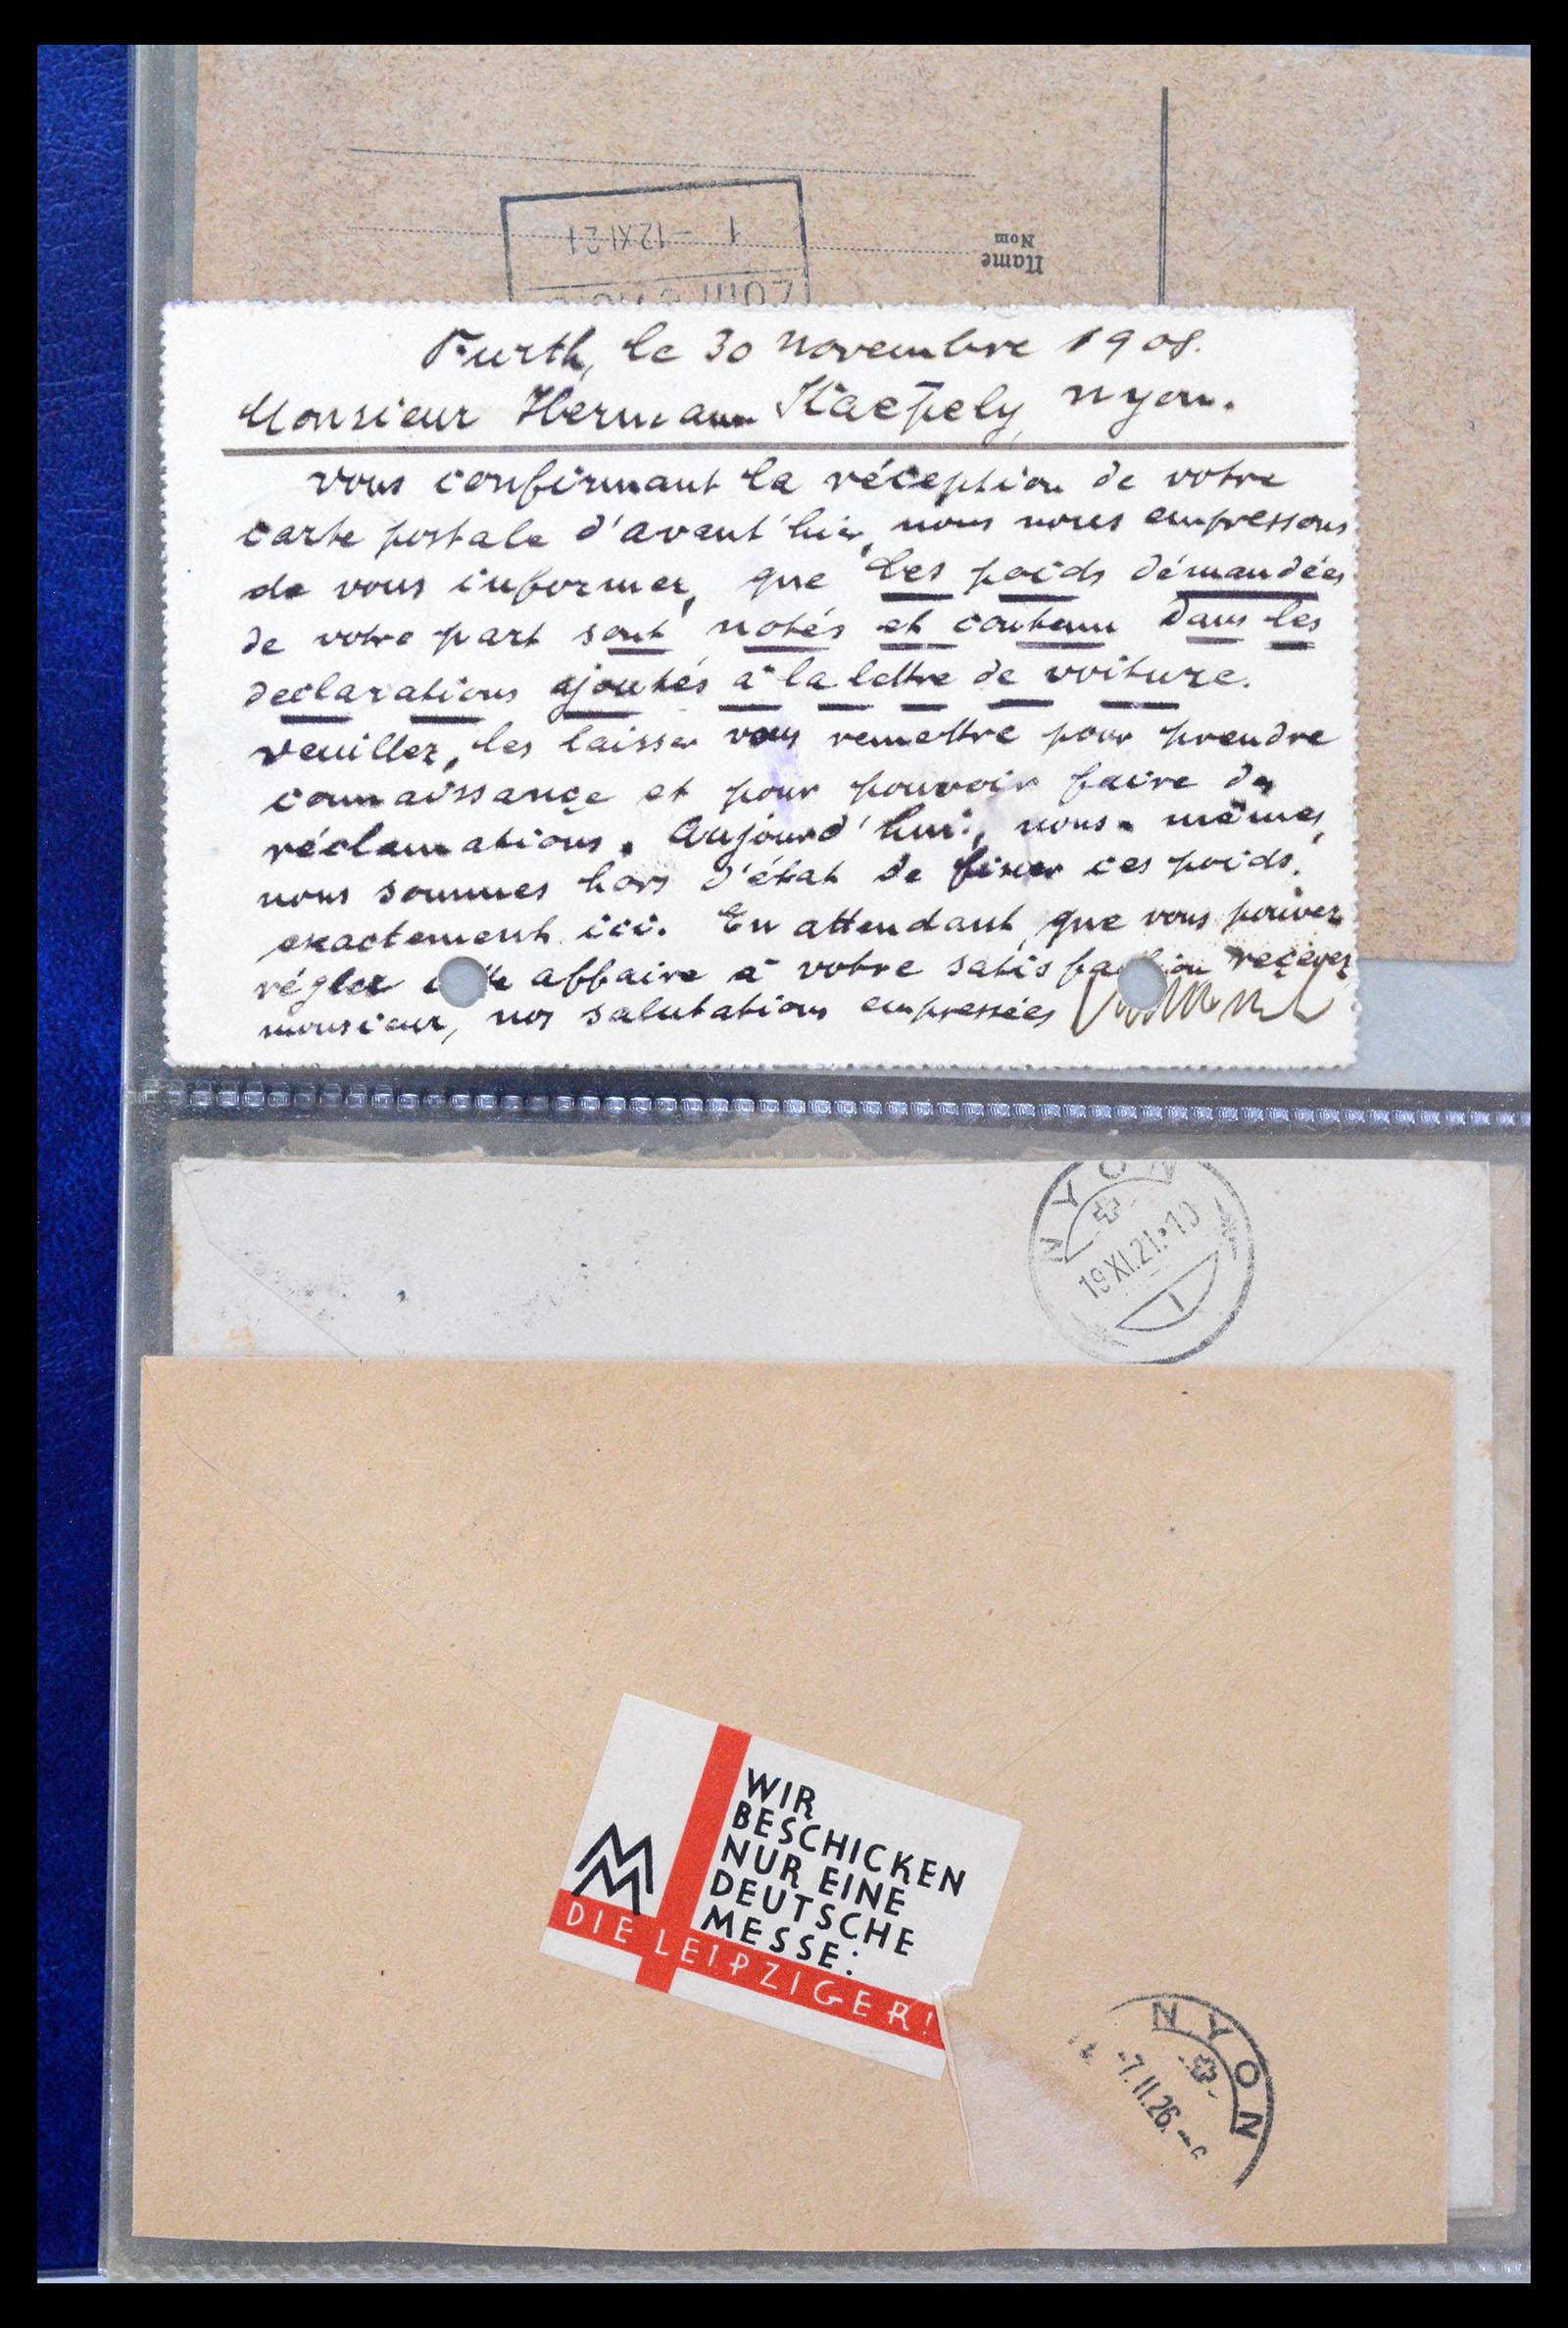 1 -12XI21
Name
Nom
Furth, le 30 Novembre 1908.
Monsieur Hermann Kaepely, Nyon.
Vous confirmant la réception de votre
carte postale d'avant'hier, nous nous empressons
de vous informer, que les poids démandées
de votre part sont notés et contenu dans les
declarations ajoutés à la lettre de voiture.
Veuillez, les laisser vous remettre pour prendre
connaissançe et pour pouvoir faire des
réclamations. Aujourd'hui, nous-mêmes,
nous sommes hors d'état de fixer ces poids
exactement ici. En attendant, que vous pouvez
régler affaire à votre satisfaction reçevez
monsieur, nos salutations empressées
NYON
19XI.21.-10
1
WIR
BESCHICKEN
NUR EINE
DEUTSCHE
MESSE:
DIE LEIPZIGER!
NYON
-7.II.26.